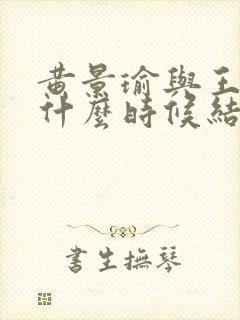 黄景瑜與王
什麼時候結
書生撫琴